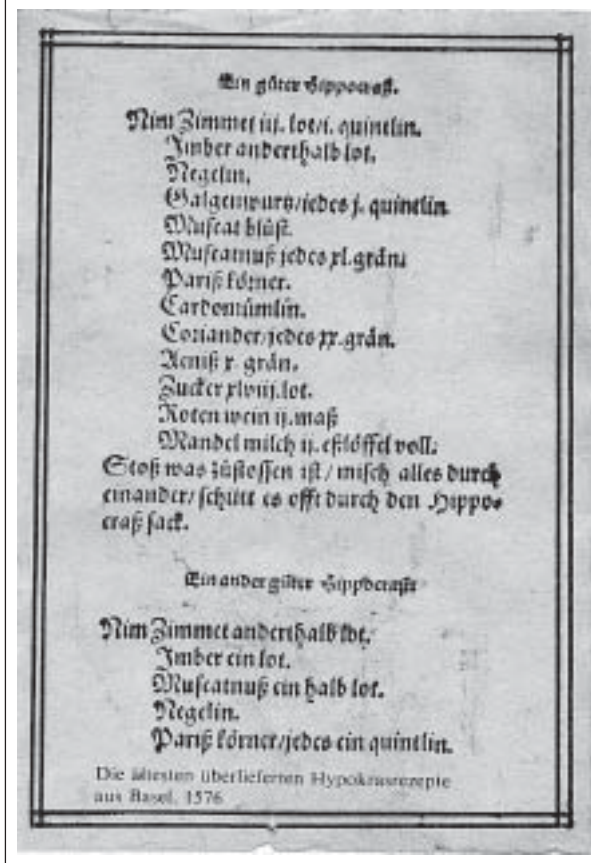 Ein gůter Hippocraß.
Nim Zimmet iij. lot/j. quintlin.
Imber anderthalb lot.
Negelin.
Galgenwurtz/jedes j. quintlin.
Muscat blůst.
Muscatnuß jedes xl. grän.
Pariß körner.
Cardomümlin.
Coriander/jedes xx. grän.
Aeniß x. grän.
Zucker xlviij. lot.
Roten wein ij. maß
Mandel milch ij. eßlöffel voll.
Stoß was zůstossen ist / misch alles durch
einander / schütt es offt durch den Hippo-
craß sack.
Ein ander gůter Hippocraß
Nim Zimmet anderthalb lot.
Imber ein lot.
Muscatnuß ein halb lot.
Negelin.
Pariß körner/jedes ein quintlin.
Die ältesten überlieferten Hypokrasrezepte
aus Basel, 1576